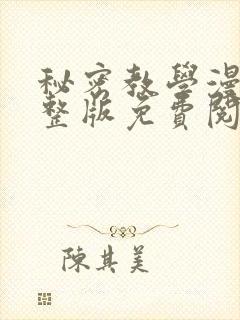 秘密教學漫
整版免費閱
陳其美